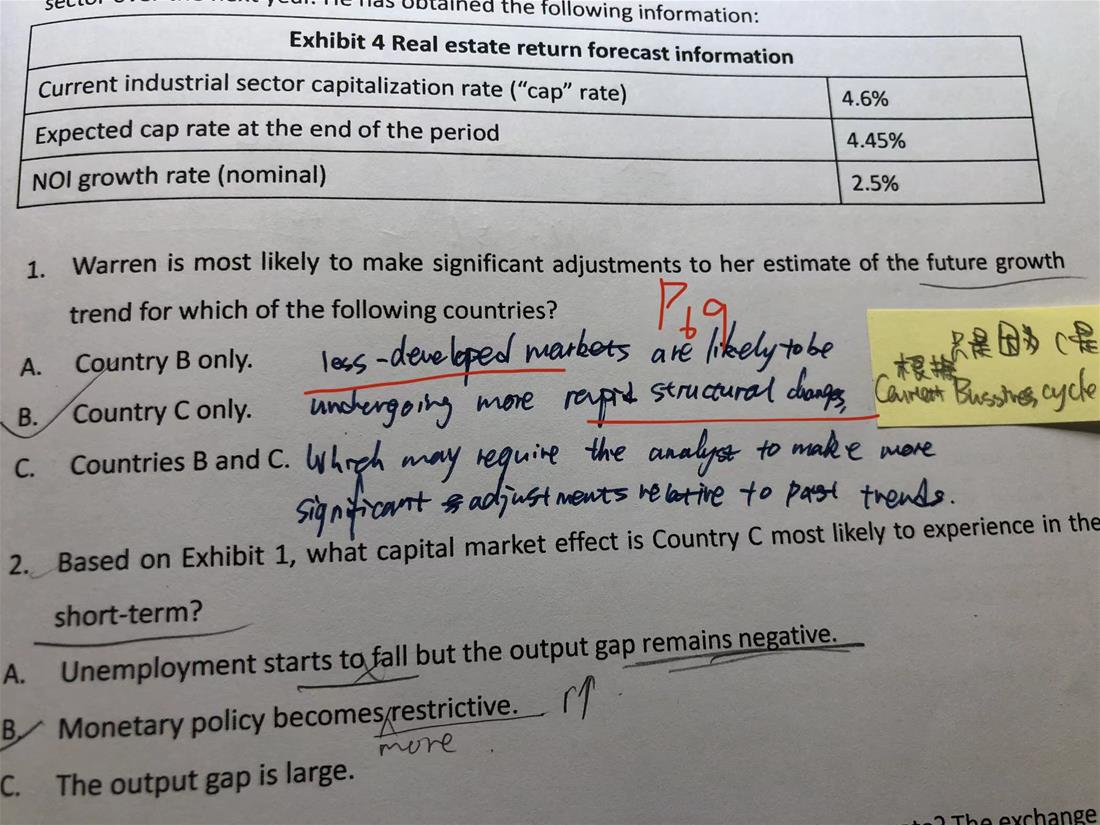 sector over the next year. He has obtained the following information:
Exhibit 4 Real estate return forecast information
Current industrial sector capitalization rate (“cap” rate) 4.6%
Expected cap rate at the end of the period 4.45%
NOI growth rate (nominal) 2.5%
1. Warren is most likely to make significant adjustments to her estimate of the future growth
trend for which of the following countries?
P69
A. Country B only. less-developed markets are likely to be
B. Country C only. undergoing more rapid structural changes,
C. Countries B and C. Which may require the analyst to make more
significant adjustments relative to past trends.
只是因为 C是
根据
Current Bussines cycle
2. Based on Exhibit 1, what capital market effect is Country C most likely to experience in the
short-term?
A. Unemployment starts to fall but the output gap remains negative.
B. Monetary policy becomes restrictive. r↑
more
C. The output gap is large.
The exchange